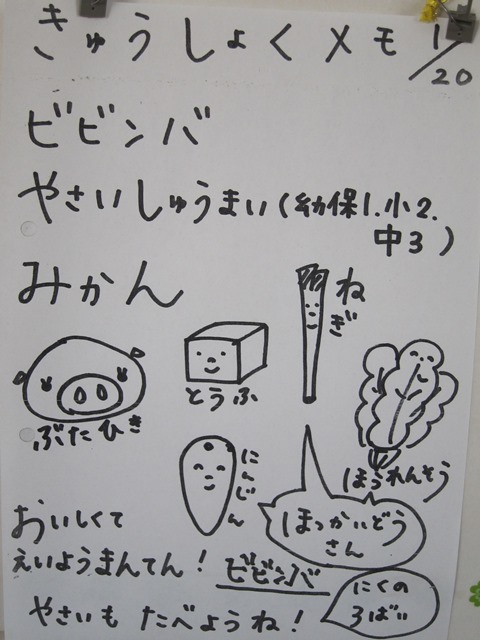 きゅうしょくメモ 1/20
ビビンバ
やさいしゅうまい(幼保1.小2.
中3)
みかん
ねぎ
とうふ
ぶたひき
ほうれんそう
にんじん
ほっかいどう
さん
おいしくて
えいようまんてん! ビビンバ
にくの
3ばい
やさいも たべようね!